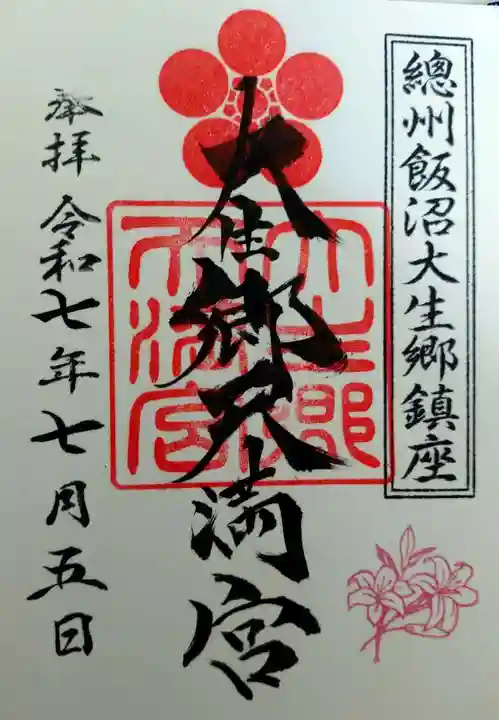 總州飯沼大生郷鎮座
大生郷天満宮
大生郷
天満宮
奉拝 令和七年七月五日